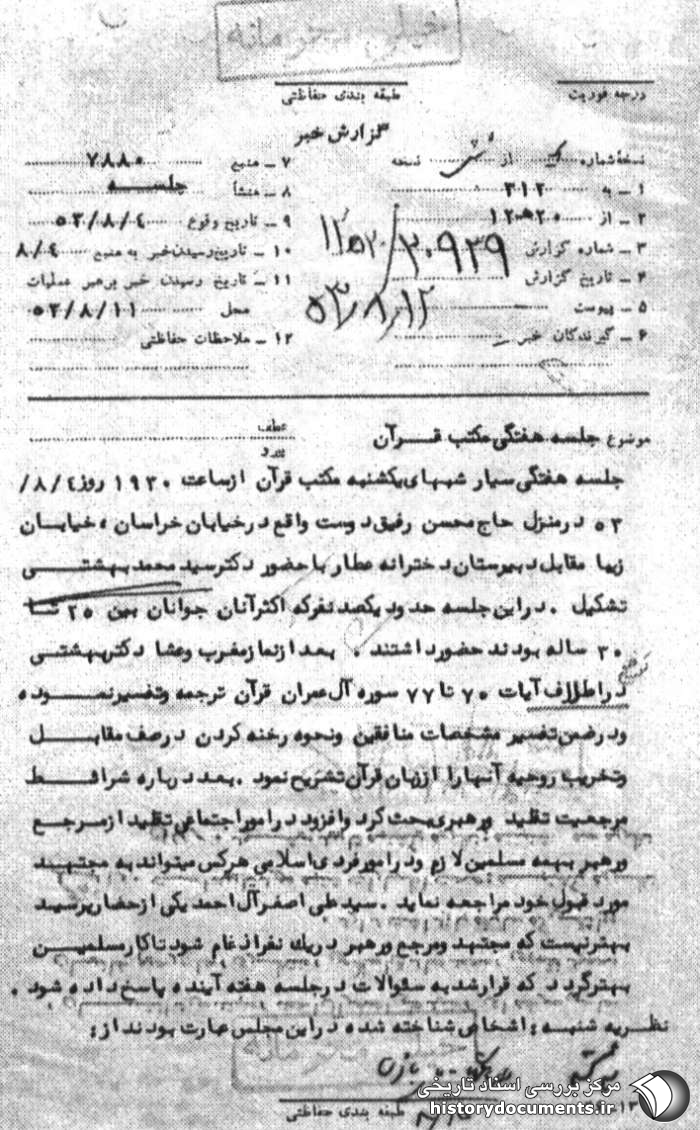 خیلی محرمانه
درجه فوریت
طبقه بندی حفاظتی
گزارش خبر
نسخهٔ شماره از نسخه
۱ ـ به ۳۱۲
۲ ـ از ۲۰ ه‍ ۱۲
۳ ـ شماره گزارش ۲۰۹۳۹ / ۱۲ ه‍ ۲۰
۴ ـ تاریخ گزارش ۵۳/۸/۱۲
۵ ـ پیوست
۶ ـ گیرندگان خبر
۷ ـ منبع ۷۸۸۰
۸ ـ منشأ جلسه
۹ ـ تاریخ وقوع ۵۳/۸/٤
۱۰ ـ تاریخ رسیدن خبر به منبع ۸/٤
۱۱ ـ تاریخ رسیدن خبر برهبر عملیات
محل ۵۳/۸/۱۱
۱۲ ـ ملاحظات حفاظتی
موضوع جلسه هفتگی مکتب قرآن
عطف
پیرو
جلسه هفتگی سیار شبهای یکشنبه مکتب قرآن از ساعت ۱۹۳۰ روز ۸/٤/
۵۳ در منزل حاج محسن رفیق دوست واقع در خیابان خراسان ، خیابان
زیبا مقابل دبیرستان دخترانه عطار با حضور دکتر سید محمد بهشتی
تشکیل . در این جلسه حدود یکصد نفر که اکثر آنان جوانان بین ۲۵ تا
۳۰ ساله بودند حضور داشتند . بعد از نماز مغرب و عشا دکتر بهشتی
در اطراف آیات ۷۰ تا ۷۷ سوره آل عمران قرآن ترجمه و تفسیر نموده
و در ضمن تفسیر مشخصات منافقین و نحوه رخنه کردن در صف مقابل
و تخریب روحیه آنها را از زبان قرآن تشریح نمود . بعد درباره شرائط
مرجعیت تقلید و رهبری بحث کرد و افزود در امور اجتماعی تقلید از مرجع
و رهبر بهمه مسلمین لازم و در امور فردی اسلامی هر کس میتواند به مجتهد
مورد قبول خود مراجعه نماید . سید علی اصغر آل احمد یکی از حضار پرسید
بهتر نیست که مجتهد و مرجع و رهبر در یک نفر ادغام شود تا کار مسلمین
بهتر گردد که قرار شد به سئوالات در جلسه هفته آینده پاسخ داده شود .
نظریه شنبه : اشخاص شناخته شده در این مجلس عبارت بودند از :
خیلی محرمانه
طبقه بندی حفاظتی
مرکز بررسی اسناد تاریخی
historydocuments.ir